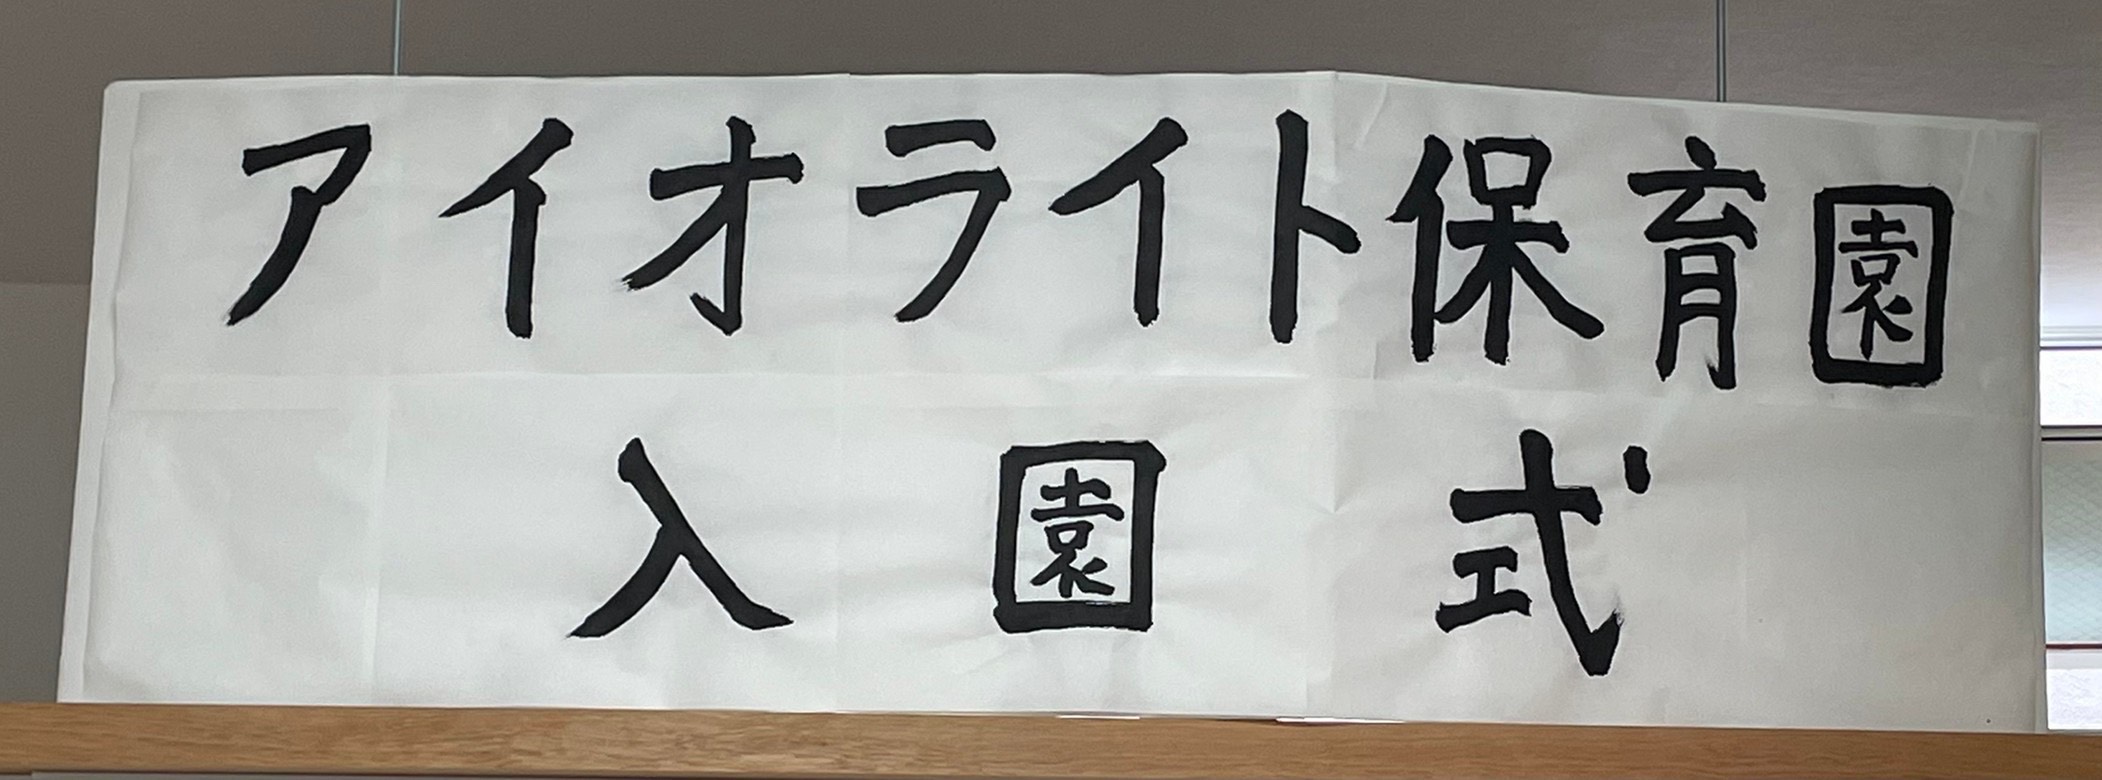 アイオライト保育園
入園式